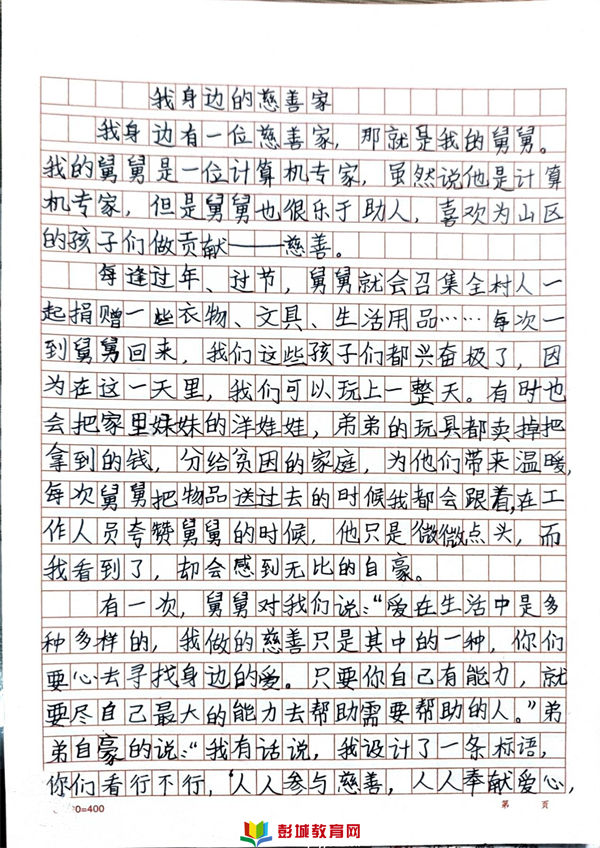 我身边的慈善家
我身边有一位慈善家，那就是我的舅舅。
我的舅舅是一位计算机专家，虽然说他是计算
机专家，但是舅舅也很乐于助人，喜欢为山区
的孩子们做贡献——慈善。
每逢过年、过节，舅舅就会召集全村人一
起捐赠一些衣物、文具、生活用品……每次一
到舅舅回来，我们这些孩子们都兴奋极了，因
为在这一天里，我们可以玩上一整天。有时也
会把家里妹妹的洋娃娃，弟弟的玩具都卖掉把
拿到的钱，分给贫困的家庭，为他们带来温暖，
每次舅舅把物品送过去的时候我都会跟着，在工
作人员夸赞舅舅的时候，他只是微微点头，而
我看到了，却会感到无比的自豪。
有一次，舅舅对我们说：“爱在生活中是多
种多样的，我做的慈善只是其中的一种，你们
要心去寻找身边的爱。只要你自己有能力，就
要尽自己最大的能力去帮助需要帮助的人。”弟
弟自豪的说：“我有话说，我设计了一条标语，
你们看行不行，‘人人参与慈善，人人奉献爱心，
0=400
第 页
彭城教育网